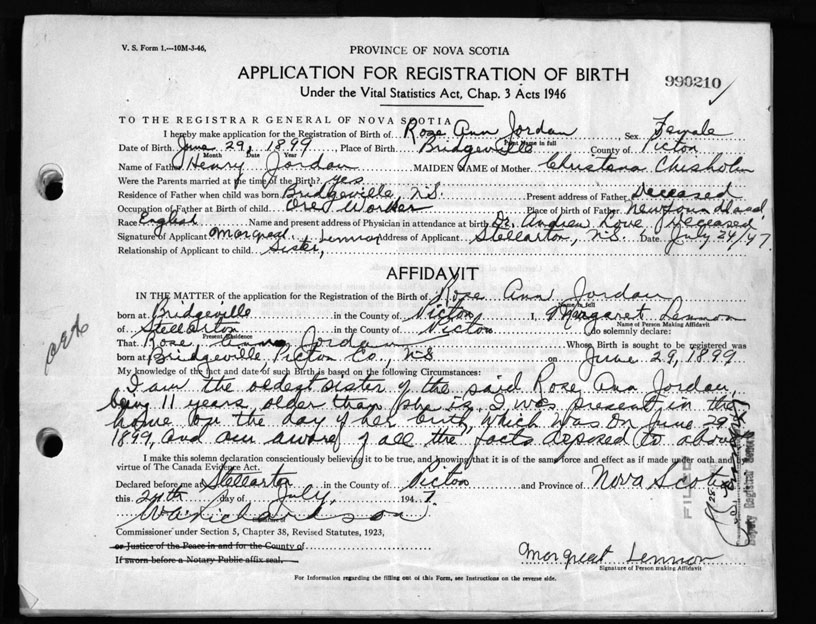 V. S. Form 1.—10M-3-46,
PROVINCE OF NOVA SCOTIA
APPLICATION FOR REGISTRATION OF BIRTH
990210
Under the Vital Statistics Act, Chap. 3 Acts 1946
TO THE REGISTRAR GENERAL OF NOVA SCOTIA
I hereby make application for the Registration of Birth of Rose Ann Jordan Sex Female
Print Name in full
Date of Birth June 29, 1899 Place of Birth Bridgeville County of Picton
Month Date Year
Name of Father Henry Jordan MAIDEN NAME of Mother Christena Chisholm
Were the Parents married at the time of the Birth? yes
Residence of Father when child was born Bridgeville, N.S. Present address of Father Deceased
Occupation of Father at Birth of child Ore Worker Place of birth of Father Newfoundland
Race English Name and present address of Physician in attendance at birth Dr. Andrew Love, Deceased
Signature of Applicant Margreat Lennon Address of Applicant Stellarton, N.S. Date July 24/47
Relationship of Applicant to child Sister,
AFFIDAVIT
IN THE MATTER of the application for the Registration of the Birth of Rose Ann Jordan
Name in full
born at Bridgeville in the County of Picton I, Margaret Lennon
Name of Person Making Affidavit
of Stellarton in the County of Picton do solemnly declare:
Present Residence
That Rose Ann Jordan Whose Birth is sought to be registered was
born at Bridgeville Picton Co., N.S. on June 29, 1899
My knowledge of the fact and date of such Birth is based on the following Circumstances:
I am the oldest sister of the said Rose Ann Jordan,
being 11 years older than she is, I was present in the
home on the day of her birth, which was on June 29
1899, and am aware of all the facts deposed to above
I make this solemn declaration conscientiously believing it to be true, and knowing that it is of the same force and effect as if made under oath and by
virtue of The Canada Evidence Act.
Declared before me at Stellarton in the County of Picton and Province of Nova Scotia
this 24th day of July, 1947.
W A Richardson
Commissioner under Section 5, Chapter 38, Revised Statutes, 1923,
or Justice of the Peace in and for the County of
If sworn before a Notary Public affix seal.
Margreat Lennon
Signature of Person making Affidavit
For Information regarding the filling out of this Form, see Instructions on the reverse side.
FILED
Deputy Registrar General